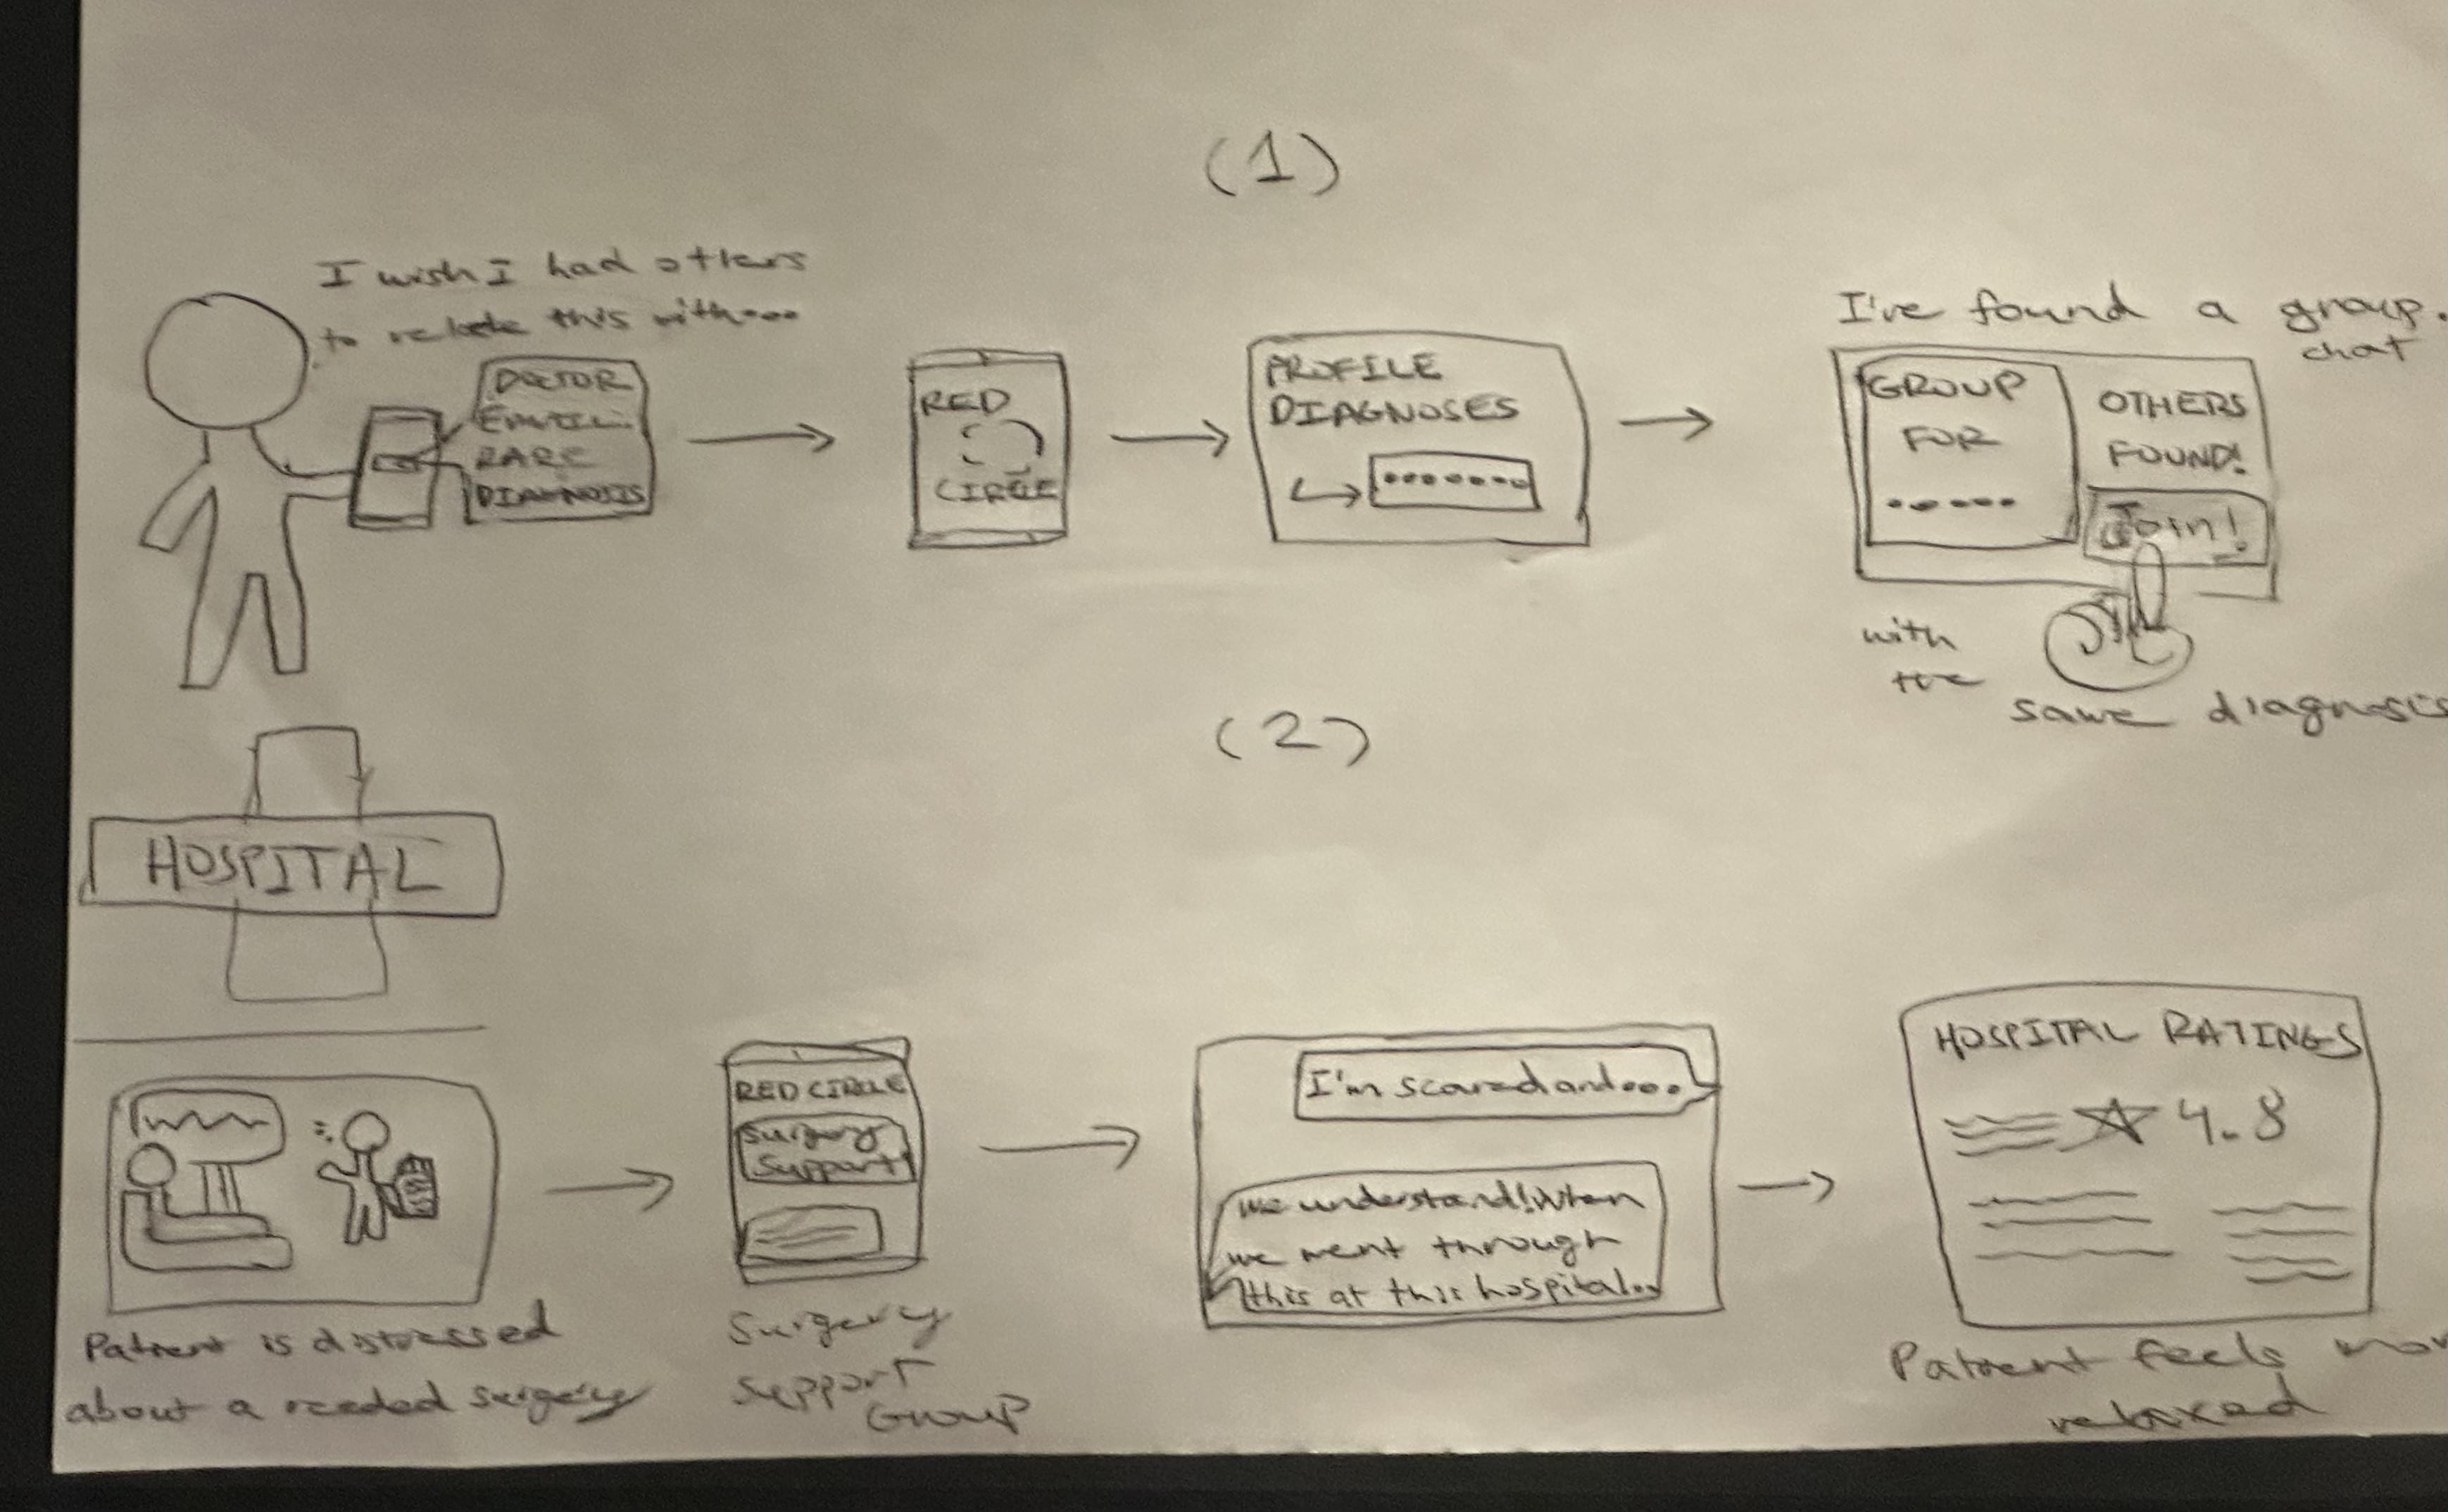 (1)
I wish I had others
to relate this with...
DOCTOR
EMAIL:
RARE
DIAGNOSIS
RED
CIRCLE
PROFILE
DIAGNOSES
I've found a group.
chat
GROUP
FOR
.....
OTHERS
FOUND!
Join!
with
the
same diagnosis
(2)
HOSPITAL
Patient is distressed
about a needed surgery
RED CIRCLE
Surgery
Support
Surgery
Support
Group
I'm scared and...
we understand! When
we went through
this at this hospital..
HOSPITAL RATINGS
4.8
Patient feels
relaxed